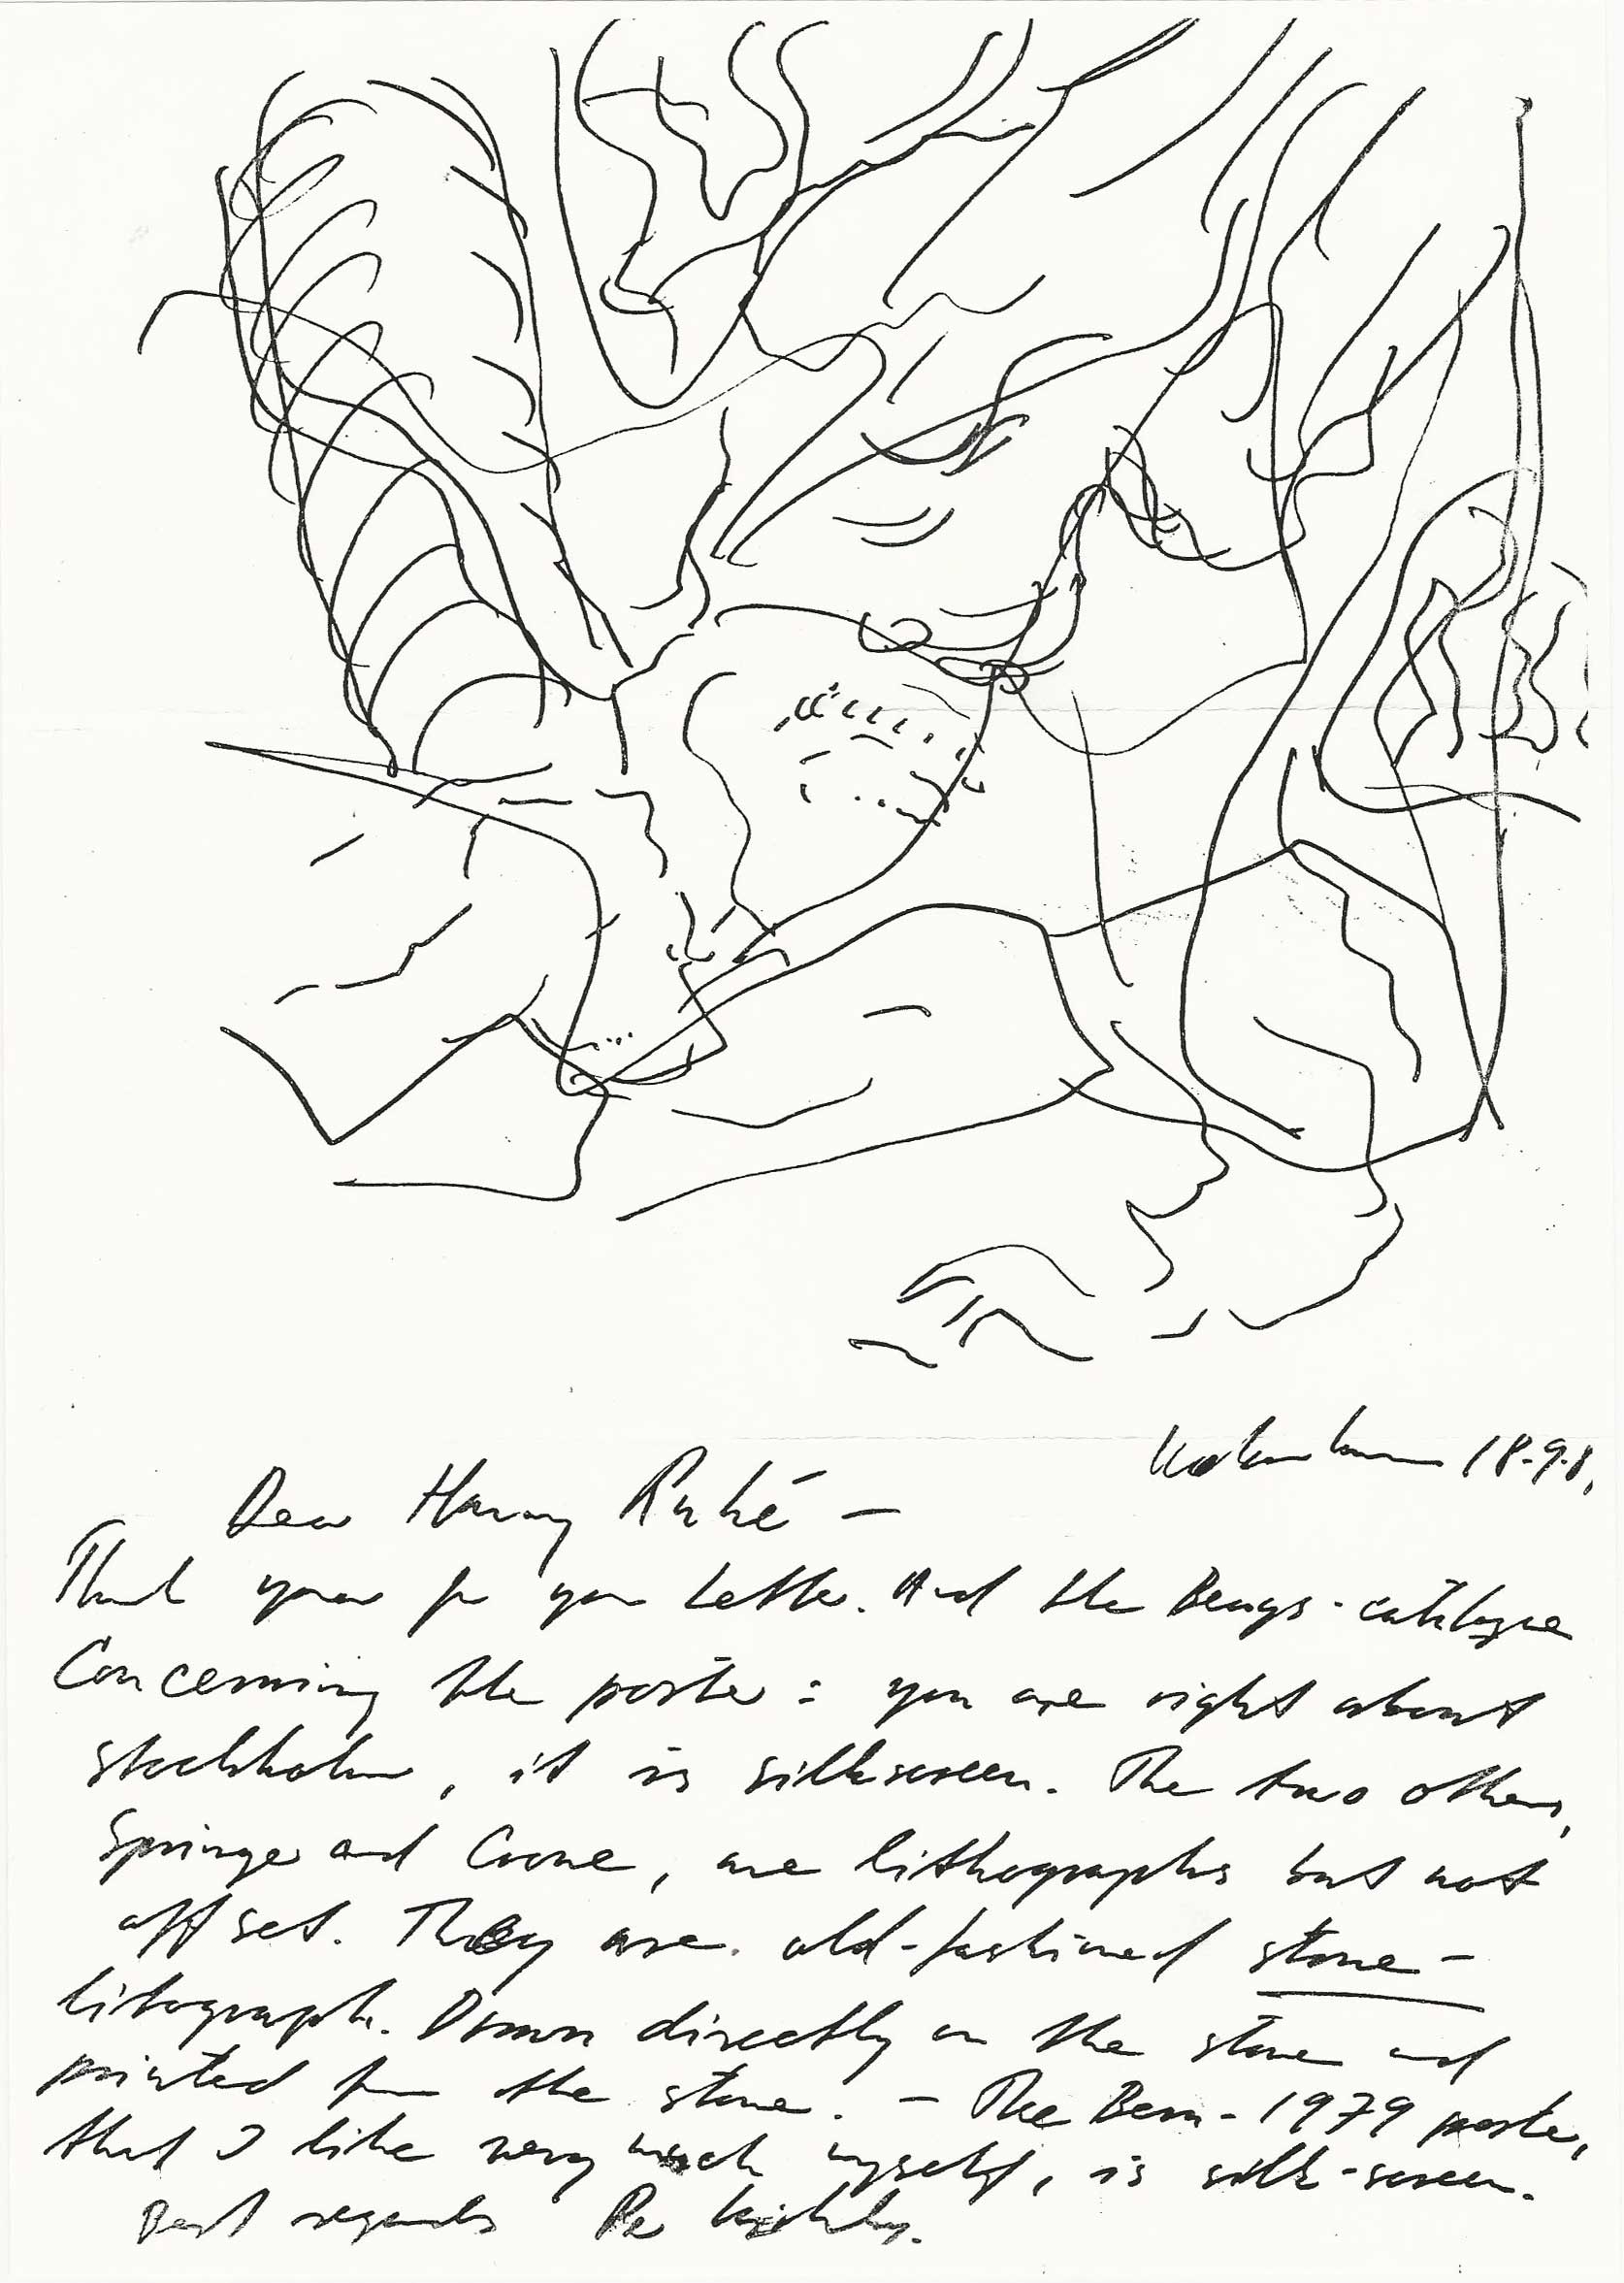 København 18.9.8
Dear Harry Ruhé —
Thank you for your letter. And the Beuys-catalogue
Concerning the poster: you are right about
Stockholm, it is silkscreen. The two others,
Springer and Crone, are lithographs but not
offset. They are old-fashioned stone-
litograph. Drawn directly on the stone and
printed from the stone. — The Bern-1979 poster,
that I like very much myself, is silk-screen.
Best regards Per Kirkeby.